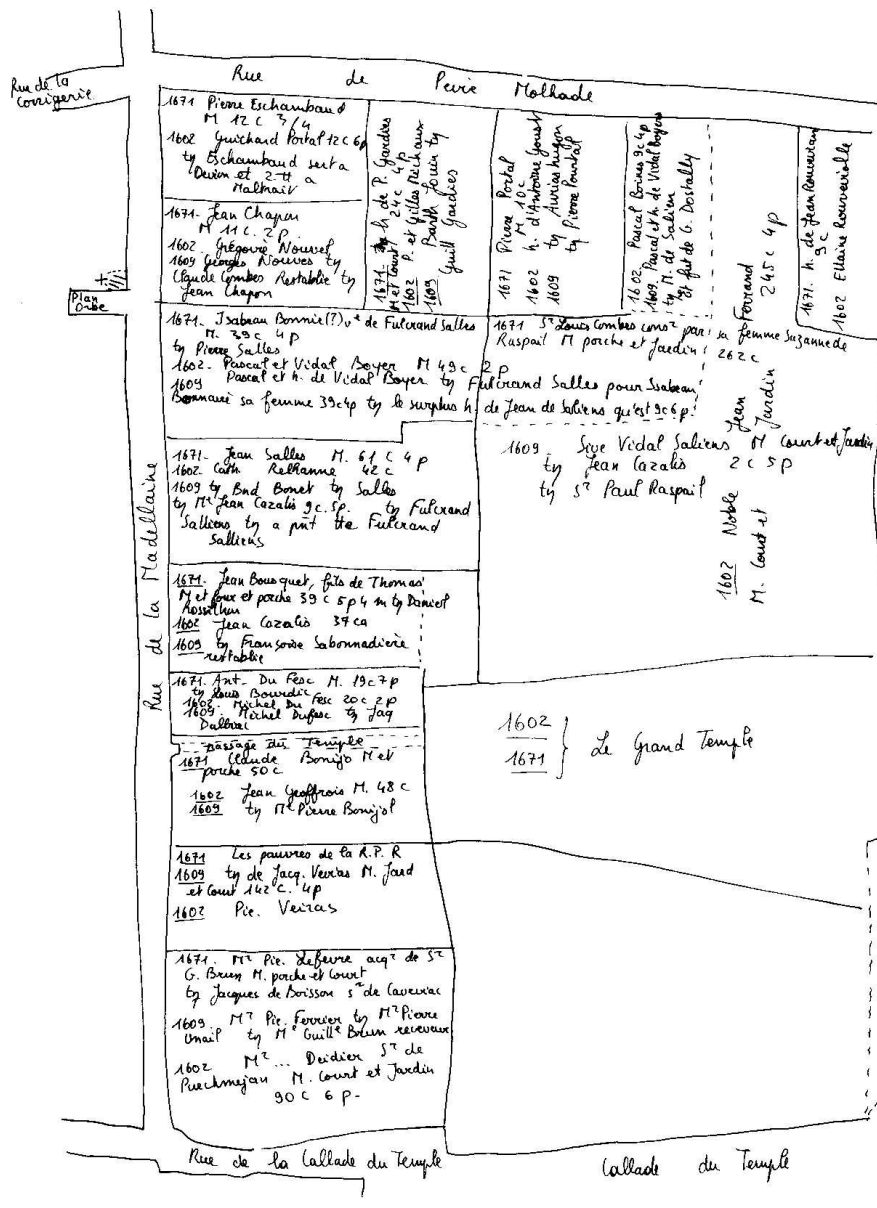 Rue de la
corrigerie
Rue de Peire Molhade
1671 Pierre Eschambaud
M 12 c 3/4
1602 Guichard Portal 12 c 6p
tz Eschambaud sert a
Devim et 2 tt a
1671. Jean Chapon
M 11 c. 2 p.
1602. Grégoire Nouvel
1609 Georges Nouves tz
Claude Combes Restablie tz
Jean Chapon
Plan
Orbe
1671. h de P. Gardies
M et Court 24c 4p
1602 P. et Gilles Michaux
1609 Barth Jouin tz
Guill Gardies
1671 Pierre Portal
M 10c
1602 h. d'Antoine Goust
1609 tz Aurias hugon
tz Pierre Pourtal
1602. Pascal Boines 9c 4p
1609. Pascal et h. de Vidal Boyers
tz M. de Salien
et fut de G. Dostally
1602 Noble Jean Ferrand
M. Court et Jardin 245c 4p
1671. h. de Jean Rouveiran
9 c
1602 Ellaine Rouveirolle
1671. Isabeau Bonnie(?) ve de Fulcrand Salles
M. 39c 4p
tz Pierre Salles
1602. Pascal et Vidal Boyer M 49c 2p
1609 Pascal et h. de Vidal Boyer tz Fulcrand Salles pour Issabeau
sa femme 39c4p tz le surplus h. de Jean de Saliens qu'est 9c6p.
1671 Sr Louis Combes consr par sa femme Suzanne de
Raspail M porche et Jardin 262 c
1609. Sive Vidal Saliens M Court et Jardin
tz Jean Cazalis 2 c 5p
tz Sr Paul Raspail
1671. Jean Salles M. 61 c 4p
1602. Cath. Relhanne 42c
1609 tz Bnd Bonet tz Salles
tz Me Jean Cazalis 9c. 5p. tz Fulcrand
Salliens tz a pnt tte Fulcrand
Salliens
Rue de la Madellaine
1671. Jean Bousquet, fils de Thomas
M et four et porche 39 c 5p 4 m tz Daniel
1602 Jean Cazalis 37 ca
1609 tz Françoise Sabonnadiere
restablie
1671. Ant. Du Fesc M. 19c7p
tz Louis Bourdic
1602. Michel Du Fesc 20c 2p
1609. Michel Dufesc tz Jaq
Dalbiac
passage du Temple
1671 Claude Bonijo M et
porche 50 c
1602 Jean Geoffrois M. 48 c
1609 tz Me Pierre Bonijol
1602
1671 } Le Grand Temple
1671 Les pauvres de la R.P.R
1609 tz de Jacq. Veiras M. Jard
et Court 142 c. 4p
1602 Pie. Veiras
1671. Mr Pie. Lefevre acqr de Sr
G. Brun M. porche et Court
tz Jacques de Boisson sr de Caveirac
1609. Mr Pie. Ferrier tz Mr Pierre
Unail tz Me Guille Brun receveur
1602 Mr ... Deidier Sr de
Puechmejan M. Court et Jardin
90 c 6 p.
Rue de la Callade du Temple
Callade du Temple